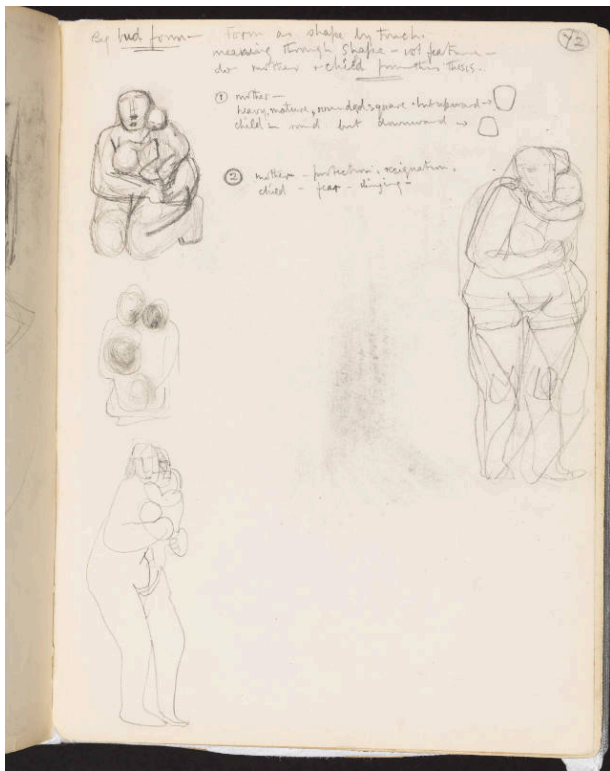 Form as shape by touch.
42
By bud form –
meaning through shape – not features –
do mother + child from this thesis..
① mother –
heavy, mature, rounded square, but upward →
child – round but downward →
② mother – protection, resignation,
child – fear – clinging –